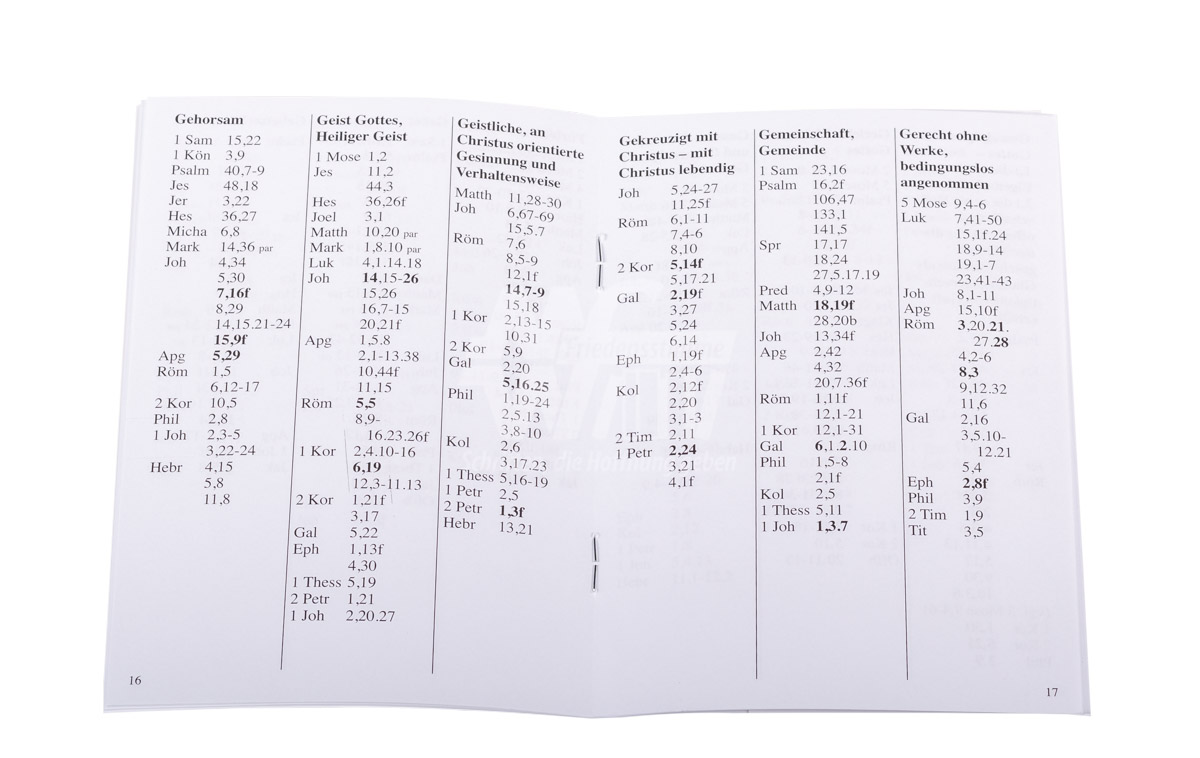 Gehorsam
1 Sam 15,22
1 Kön 3,9
Psalm 40,7-9
Jes 48,18
Jer 3,22
Hes 36,27
Micha 6,8
Mark 14,36 par
Joh 4,34
5,30
7,16f
8,29
14,15.21-24
15,9f
Apg 5,29
Röm 1,5
6,12-17
2 Kor 10,5
Phil 2,8
1 Joh 2,3-5
3,22-24
Hebr 4,15
5,8
11,8
16
Geist Gottes,
Heiliger Geist
1 Mose 1,2
Jes 11,2
44,3
Hes 36,26f
Joel 3,1
Matth 10,20 par
Mark 1,8.10 par
Luk 4,1.14.18
Joh 14,15-26
15,26
16,7-15
20,21f
Apg 1,5.8
2,1-13.38
10,44f
11,15
Röm 5,5
8,9-
16.23.26f
1 Kor 2,4.10-16
6,19
12,3-11.13
2 Kor 1,21f
3,17
Gal 5,22
Eph 1,13f
4,30
1 Thess 5,19
2 Petr 1,21
1 Joh 2,20.27
Geistliche, an
Christus orientierte
Gesinnung und
Verhaltensweise
Matth 11,28-30
Joh 6,67-69
15,5.7
Röm 7,6
8,5-9
12,1f
14,7-9
15,18
1 Kor 2,13-15
10,31
2 Kor 5,9
Gal 2,20
5,16.25
Phil 1,19-24
2,5.13
3,8-10
Kol 2,6
3,17.23
1 Thess 5,16-19
1 Petr 2,5
2 Petr 1,3f
Hebr 13,21
Gekreuzigt mit
Christus – mit
Christus lebendig
Joh 5,24-27
11,25f
Röm 6,1-11
7,4-6
8,10
2 Kor 5,14f
5,17.21
Gal 2,19f
3,27
5,24
6,14
Eph 1,19f
2,4-6
Kol 2,12f
2,20
3,1-3
2 Tim 2,11
1 Petr 2,24
3,21
4,1f
Gemeinschaft,
Gemeinde
1 Sam 23,16
Psalm 16,2f
106,47
133,1
141,5
Spr 17,17
18,24
27,5.17.19
Pred 4,9-12
Matth 18,19f
28,20b
Joh 13,34f
Apg 2,42
4,32
20,7.36f
Röm 1,11f
12,1-21
1 Kor 12,1-31
Gal 6,1.2.10
Phil 1,5-8
2,1f
Kol 2,5
1 Thess 5,11
1 Joh 1,3.7
Gerecht ohne
Werke,
bedingungslos
angenommen
5 Mose 9,4-6
Luk 7,41-50
15,1f.24
18,9-14
19,1-7
23,41-43
Joh 8,1-11
Apg 15,10f
Röm 3,20.21.
27.28
4,2-6
8,3
9,12.32
11,6
Gal 2,16
3,5.10-
12.21
5,4
Eph 2,8f
Phil 3,9
2 Tim 1,9
Tit 3,5
17